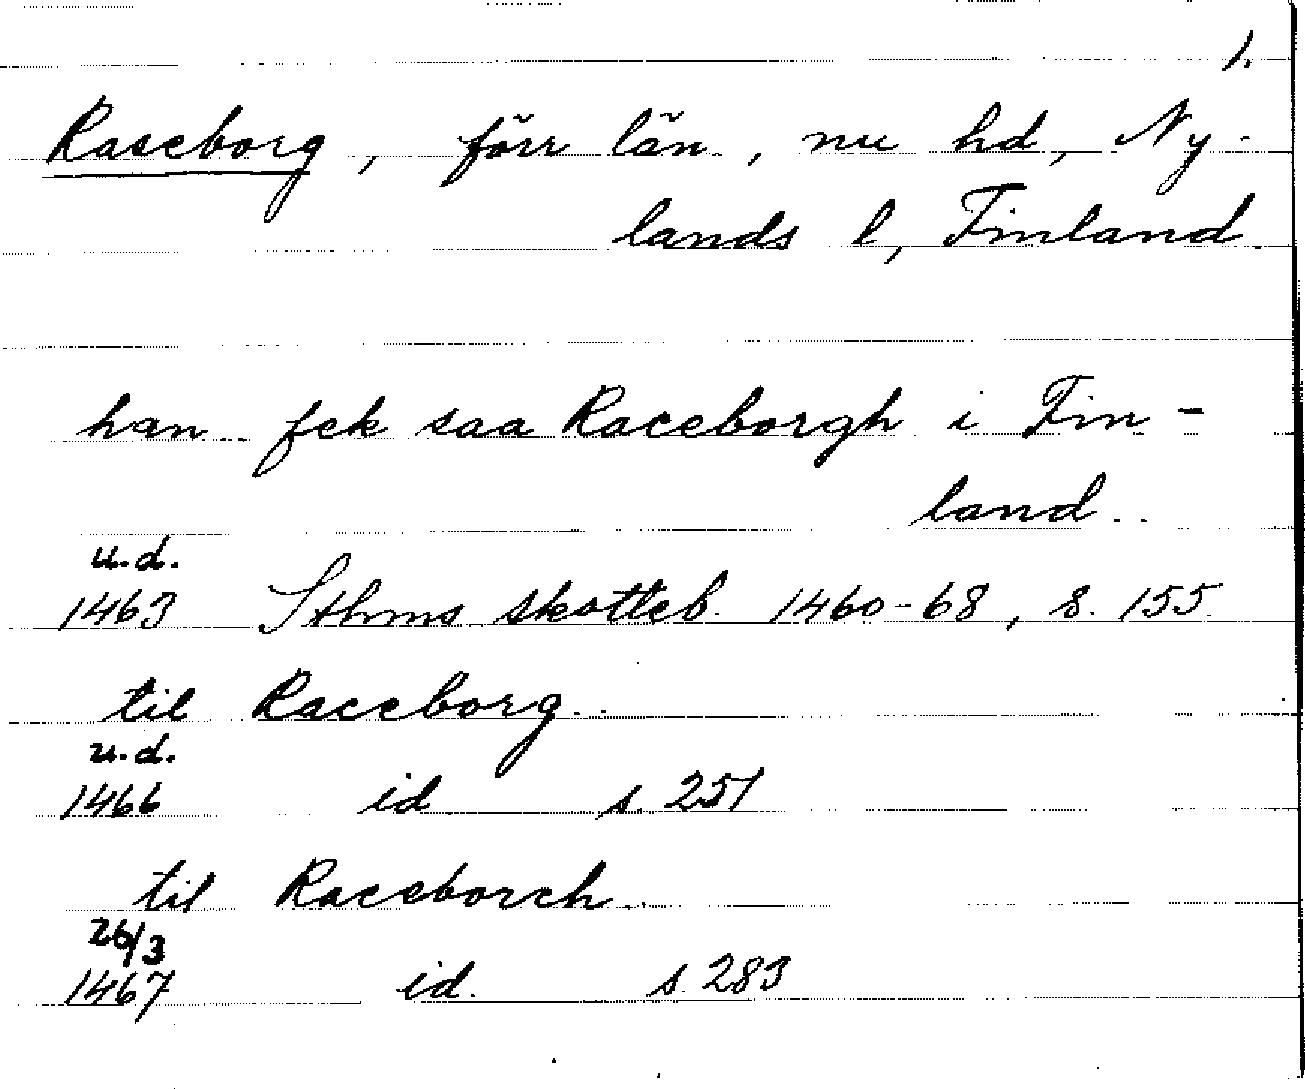 1.
Raseborg, förr län, nu hd, Ny-
lands l, Finland.
han.. fek saa Raceborgh i Fin-
land..
u.d.
1463 Sthms skotteb. 1460-68, s. 155.
til Raceborg..
u.d.
1466 id s. 251
til Raceborch..
26/3
1467 id. s. 283